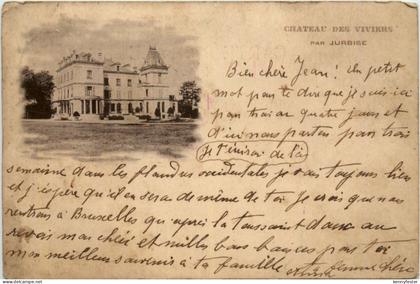 CHATEAU DES VIVIERS
PAR JURBISE
Bien chère Jean! Un petit
mot pour te dire que je suis ici
pour trois ou quatre jours et
d'ici nous partons pour trois
Je t'écrirai de là
semaine dans les flandres occidentales je vais toujours bien
et j'espère qu'il en sera de même de toi Je crois que nous
rentrons à Bruxelles qu'après la Toussaint donc au
revoir ma chère et mille bons baisers pour toi
mon meilleur souvenir à ta famille